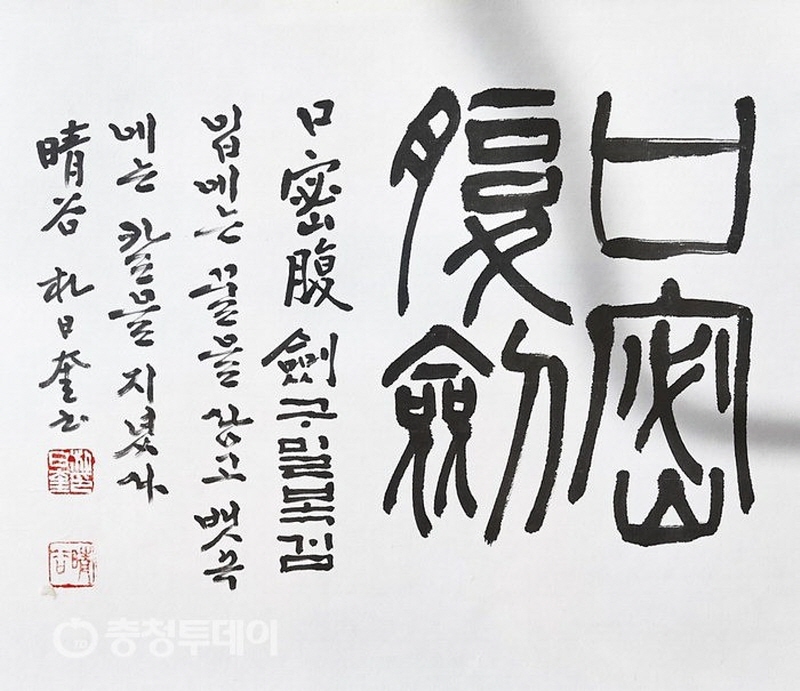 口密
腹劍
口密腹劍 구밀복검
입에는 꿀을 담고 뱃속
에는 칼을 지녔다
晴谷 朴日奎书
晴谷
충청투데이